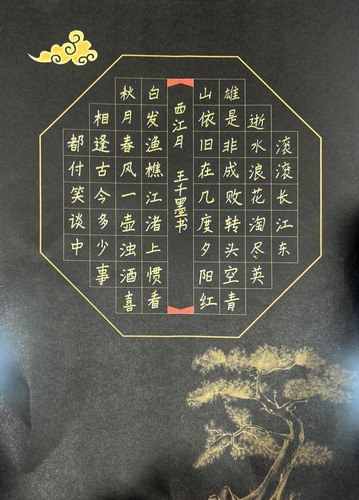 滚滚长江东
逝水浪花淘尽英
雄是非成败转头空青
山依旧在几度夕阳红
西江月 王千墨书
白发渔樵江渚上惯看
秋月春风一壶浊酒喜
相逢古今多少事
都付笑谈中